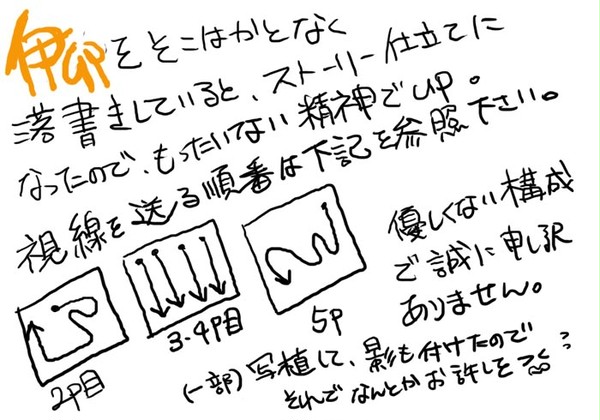 伊卯をそこはかとなく
落書きしていると、ストーリー仕立てに
なったので、もったいない精神でUP。
視線を送る順番は下記を参照下さい。
優しくない構成
で誠に申し訳
ありません。
2P目
3.4P目
5P
(一部)写植して、影も付けたので
それでなんとかお許しを